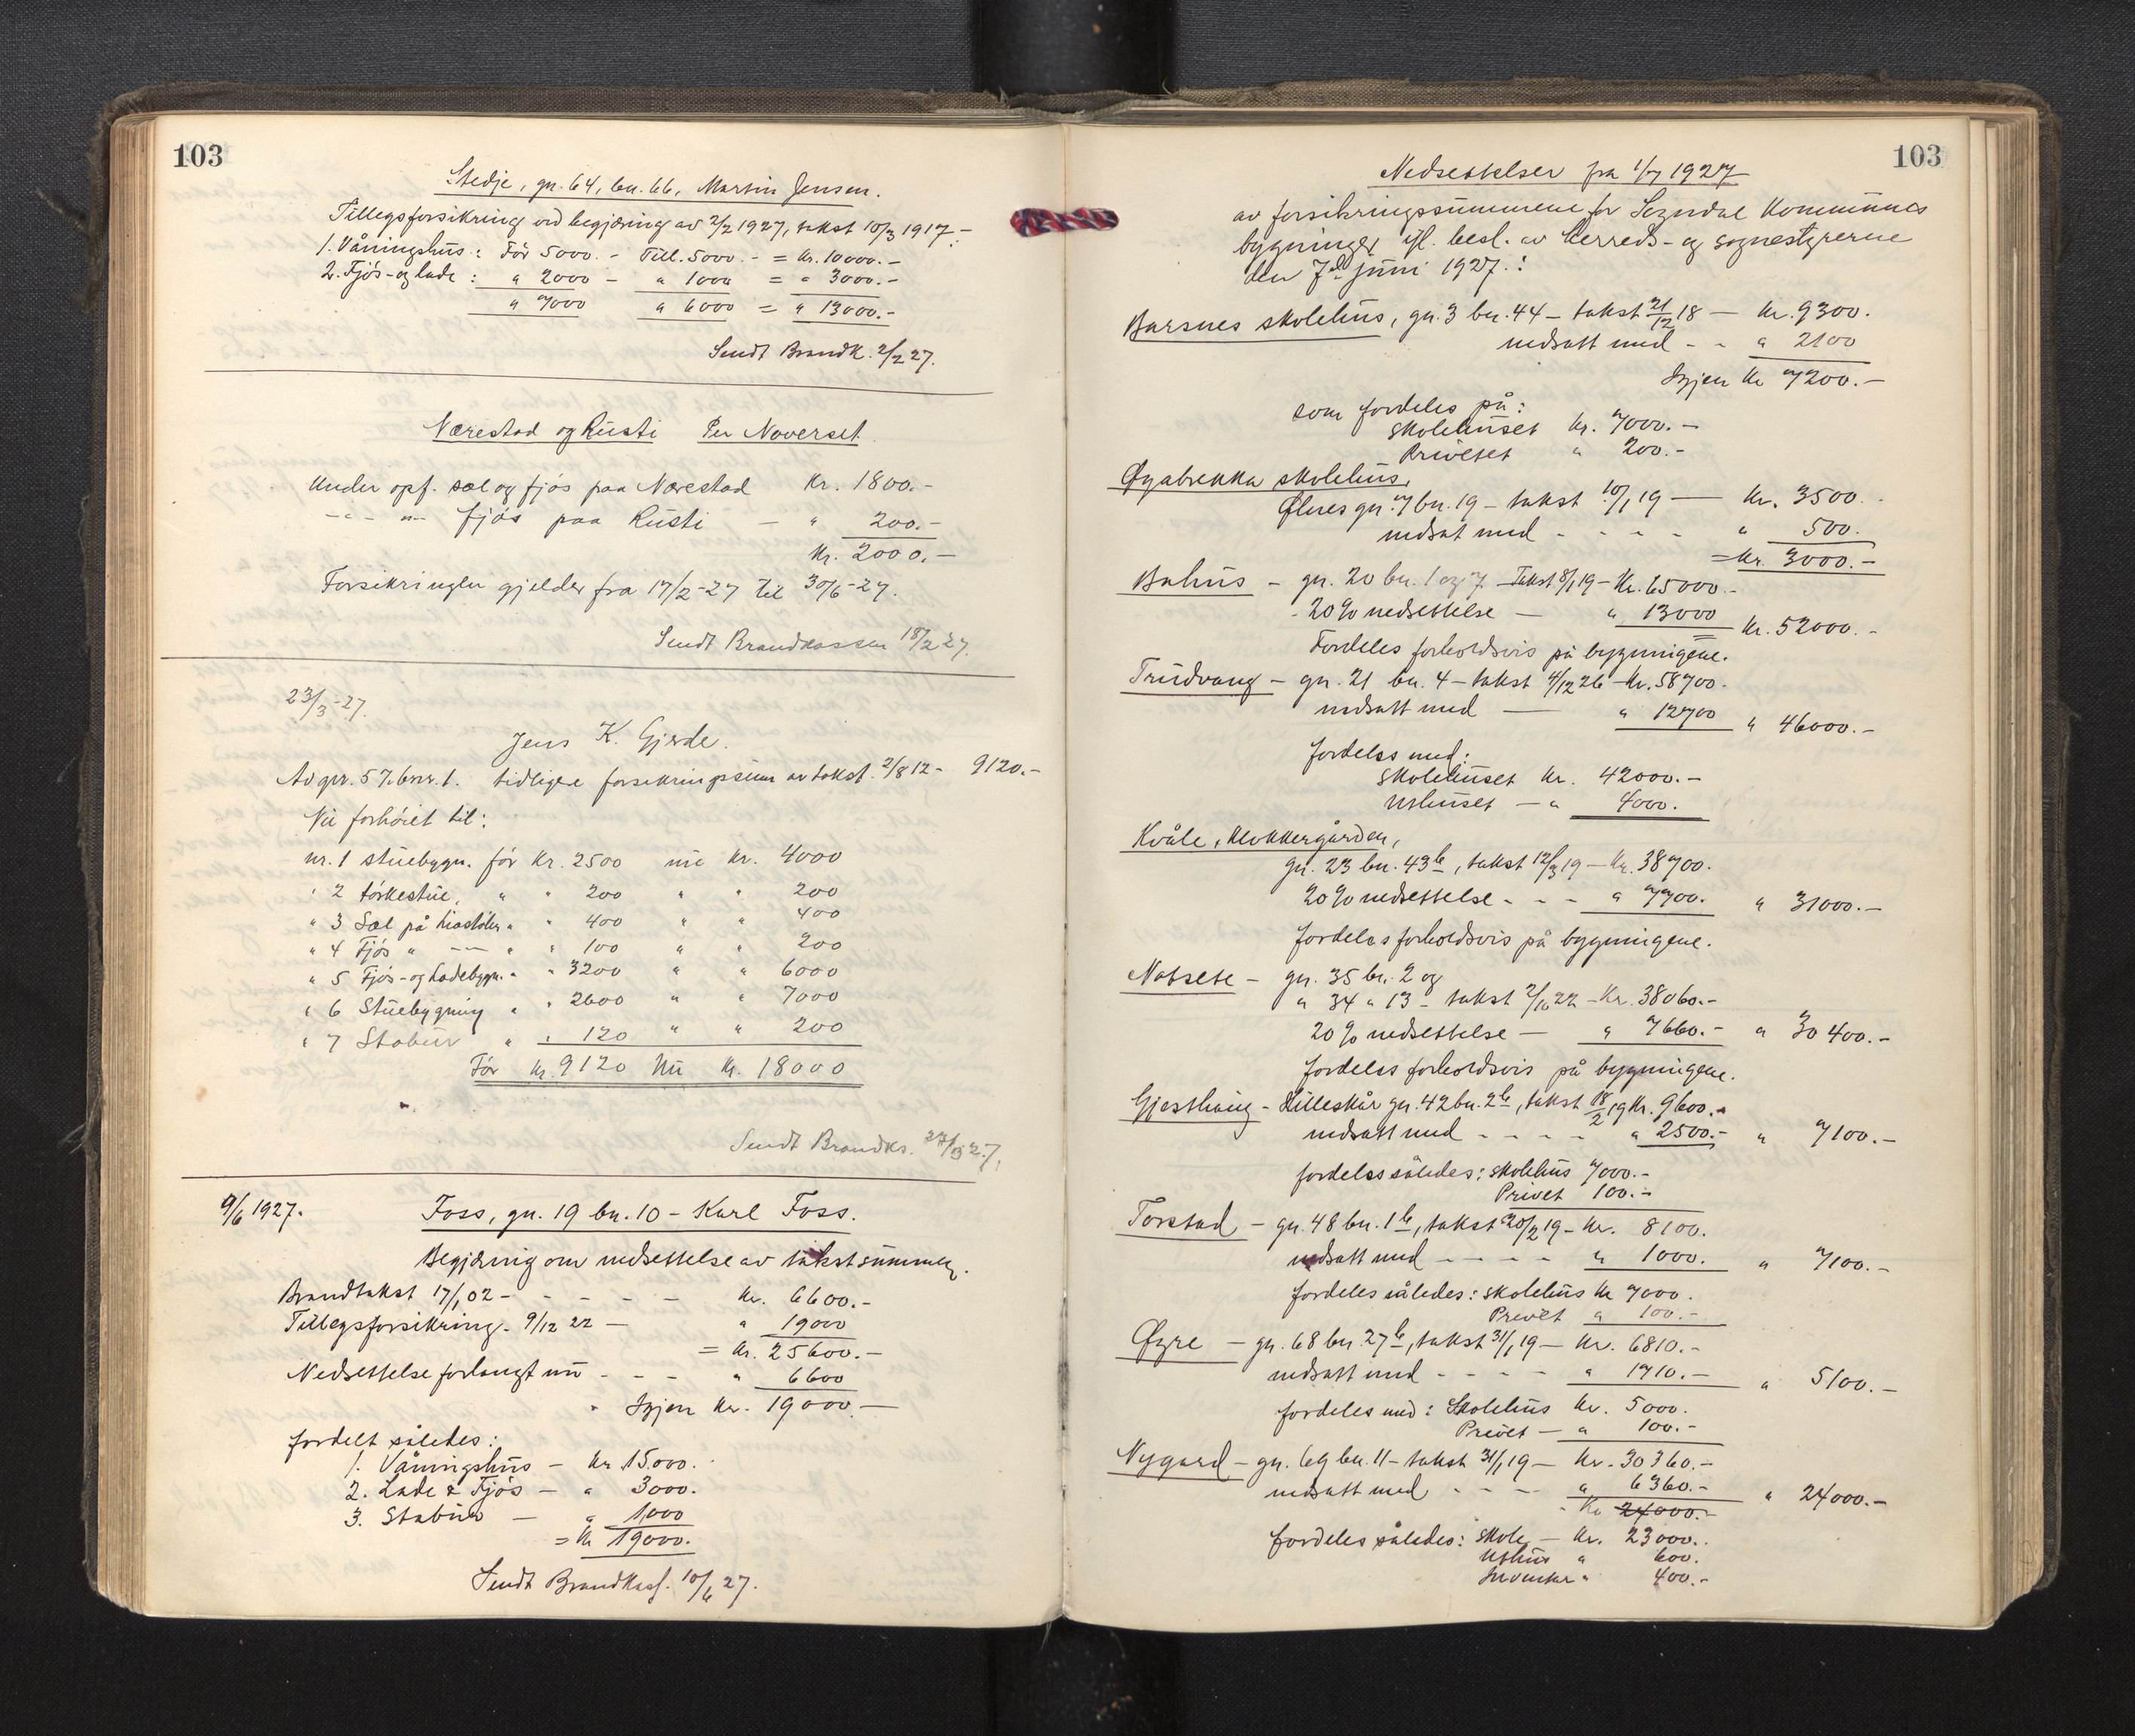 103
Stedje, gn. 64, bn. 66, Martin Jensen.
Tillegsforsikring ved begjæring av 2/2 1927, takst 10/3 1917:-
1. Våningshus: Før 5000.- Till. 5000.- = Kr. 10000.-
2. Fjøs- og lade: " 2000 - " 1000 = " 3000.-
" 7000 " 6000 = " 13000.-
Sendt Brandk. 2/2 27.
Nærestad og Rusti Per Noverset.
Under opf. sæl og fjøs paa Nærestad Kr. 1800.-
-"- -"- fjøs paa Rusti - " 200.-
Kr. 2000.-
Forsikringen gjelder fra 17/2-27 til 30/6-27.
Sendt Brandkassen 18/2 27.
23/3-27.
Jens K. Gjerde.
Av gnr. 57. bnr. 1. tidligere forsikringssum av takst. 2/8 12 - 9120.-
Nu forhøiet til:
nr. 1 stuebygn. før Kr. 2500 nu Kr. 4000
" 2 tørkestue, " " 200 " " 200
" 3 Sæl på hiastølen " " 400 " " 400
" 4 Fjøs " -"- " " 100 " " 200
" 5 Fjøs- og Ladebygn. " " 3200 " " 6000
" 6 Stuebygning " " 2600 " " 7000
" 7 Stabur " " 120 " " 200
Før kr. 9120 Nu Kr. 18000
Sendt Brandks. 27/3 27.
9/6 1927. Foss, gn. 19 bn. 10 - Karl Foss.
Begjæring om nedsettelse av takstsummen.
Brandtakst 17/1 02 - - - - - Kr. 6600.-
Tillegsforsikring - 9/12 22 - " 19000
= Kr. 25600.-
Nedsettelse forlangt nu - - - " 6600
Igjen Kr. 19000.-
fordelt således:
1. Våningshus - Kr. 15000.
2. Lade & Fjøs - " 3000.
3. Stabur - " 1000
= Kr 19000.
Sendt Brandkas. 10/6 27.
103
Nedsettelser fra 1/7 1927
av forsikringssummene for Sogndal Kommunes
bygninger ifl. besl. av herreds- og sognestyrerne
den 7de juni 1927.:
Barsnes skolehus, gn. 3 bn. 44 - takst 21/12 18 - Kr. 9300.
nedsatt med - - " 2100
Igjen Kr 7200.-
som fordeles på:
Skolehuset Kr. 7000.-
Privetet " 200.-
Øyabrekka skolehus,
Ølnes gn. 7 bn. 19 - takst 10/1 19 - Kr. 3500.
nedsat med - - - - " 500.
= Kr. 3000.-
Buhus - gn. 20 bn. 1 og 7. - Takst 8/1 19 - Kr. 65000.-
20% nedsettelse - " 13000 Kr. 52000.-
Fordeles forholdsvis på bygningene.
Trudvang - gn. 21 bn. 4 - takst 4/12 26 - Kr. 58700.
nedsatt med - " 12700 " 46000.-
fordeles med:
Skolehuset Kr. 42000.-
Uthuset - " 4000.
Kvåle, Klokkergården,
gn. 23 bn. 43 b, takst 12/3 19 - Kr. 38700.
20% nedsettelse - - - " 7700. " 31000.-
fordeles forholdsvis på bygningene.
Notsete - gn. 35 bn. 2 og
" 34 " 13 - takst 2/10 22 - Kr. 38060.-
20% nedsettelse - " 7660.- " 30400.-
fordeles forholdsvis på bygningene.
Gjesthaug - Lilleskår gn. 42 bn. 2 b, takst 18/2 19 Kr. 9600.-
nedsatt med - - - - " 2500.- " 7100.-
fordeles således: skolehus 7000.-
Privet 100.-
Torstad - gn. 48 bn. 1 b, takst 20/2 19 - Kr. 8100.
nedsatt med - - - - " 1000. " 7100.-
fordeles således: skolehus Kr 7000.
Privet " 100.-
Øyre - gn. 68 bn. 27 b, takst 31/1 19 - Kr. 6810.-
nedsatt med - - - - " 1710.- " 5100.-
fordeles med: Skolehus Kr. 5000.
Privet - " 100.-
Nygard - gn. 69 bn. 11 - takst 31/1 19 - Kr. 30360.-
nedsatt med - - - - " 6360.- " 24000.-
Kr 24000.-
fordeles således: Skole - Kr. 23000.
Uthus " 600.
Inventar " 400.-